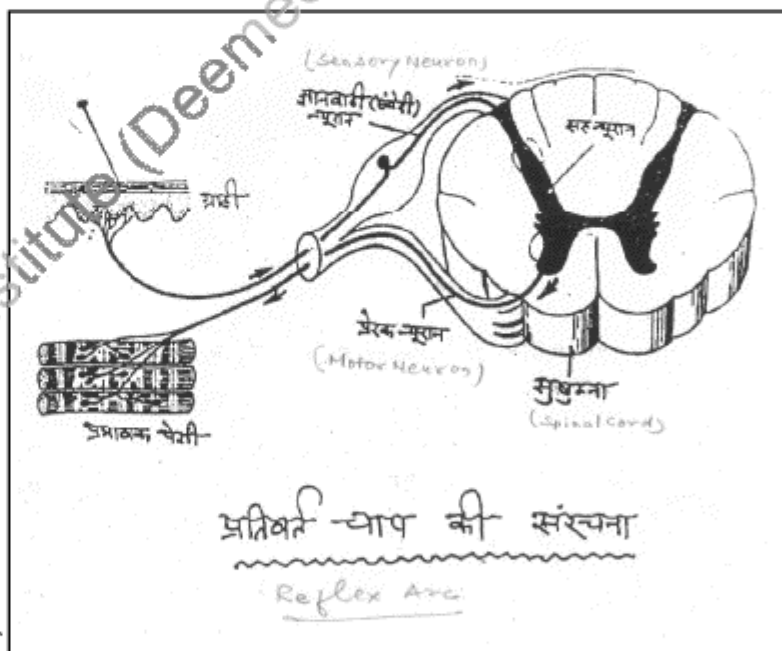 stitute (Deemed
(Sensory Neuron)
ज्ञानवाही (संवेदी)
न्यूरान
सहन्यूरान
ग्राही
प्रेरक न्यूरान
(Motor Neuron)
सुषुम्ना
(Spinal Cord)
प्रभावक पेशी
प्रतिवर्त चाप की संरचना
Reflex Arc